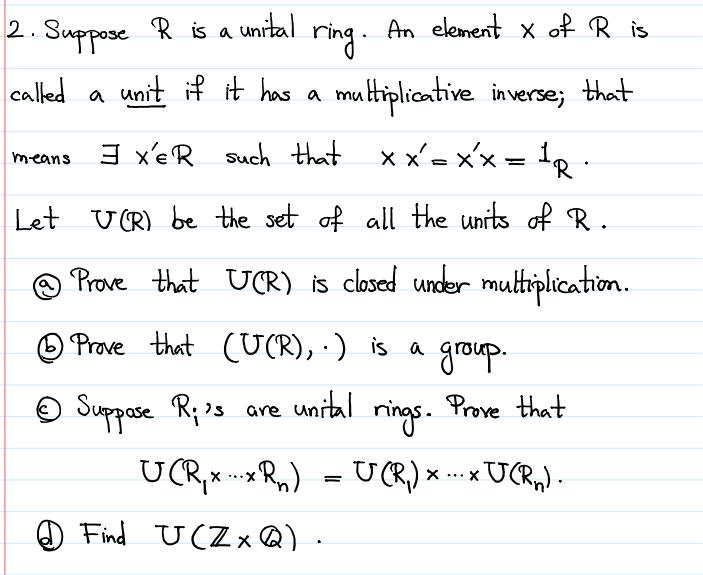 2. Suppose R is a unital ring. An element x of R is
called a unit if it has a multiplicative inverse; that
means ∃ x'∈R such that x x' = x'x = 1_R.
Let U(R) be the set of all the units of R.
ⓐ Prove that U(R) is closed under multiplication.
ⓑ Prove that (U(R), ·) is a group.
ⓒ Suppose R_i's are unital rings. Prove that
U(R_1 × ··· × R_n) = U(R_1) × ··· × U(R_n).
ⓓ Find U(ℤ × ℚ).